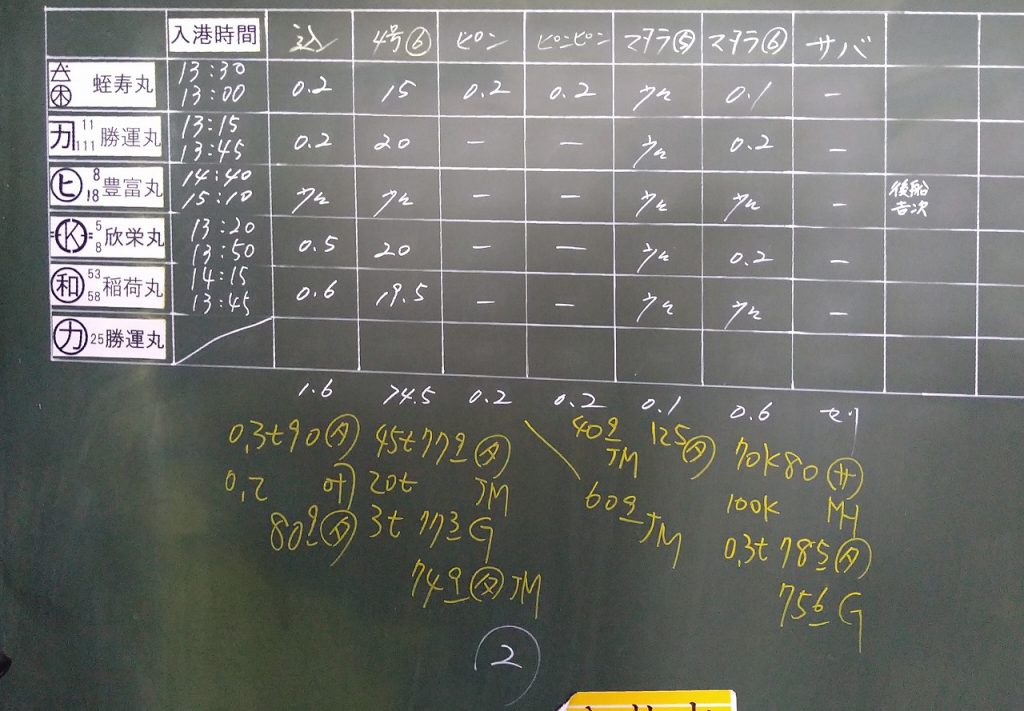 入港時間 込 4号⑥ ピン ピンピン マダラ⑤ マダラ⑥ サバ
蛭寿丸 13:30 13:00 0.2 15 0.2 0.2 少々 0.1 ー
11 111 勝運丸 13:15 13:45 0.2 20 ー ー 少々 0.2 ー
ヒ 8 18 豊富丸 14:40 15:10 少々 少々 ー ー 少々 少々 ー 後船 吉次
K 5 8 欣栄丸 13:20 13:50 0.5 20 ー ー 少々 0.2 ー
和 53 58 稲荷丸 14:15 13:45 0.6 19.5 ー ー 少々 少々 ー
カ 25 勝運丸
1.6 74.5 0.2 0.2 0.1 0.6 セリ
0.3t 90 タ 45t 779 タ 409 JM 125 タ 70K 80 サ
0.2 20t JM 609 JM 100K MH
809 タ 3t 773 G 0.3t 785 タ
749 タ JM 756 G
2